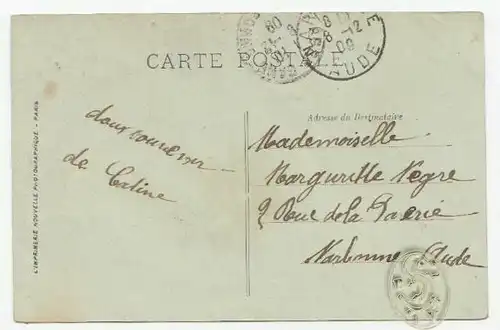 CARTE POSTALE
8-12
09
AUDE
Adresse du Destinataire
doux souvenir
de Caline
Mademoiselle
Marguritte Negre
2 Rue de la
Narbonne Aude
L'IMPRIMERIE NOUVELLE PHOTOGRAPHIQUE - PARIS